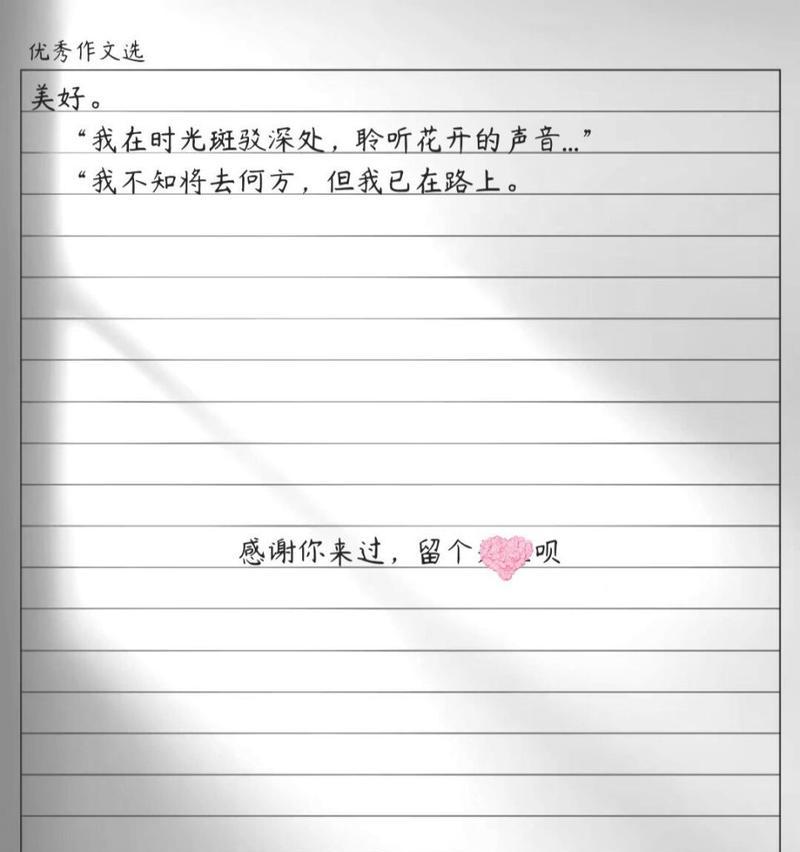 优秀作文选
美好。
“我在时光斑驳深处，聆听花开的声音...”
“我不知将去何方，但我已在路上。
感谢你来过，留个呗